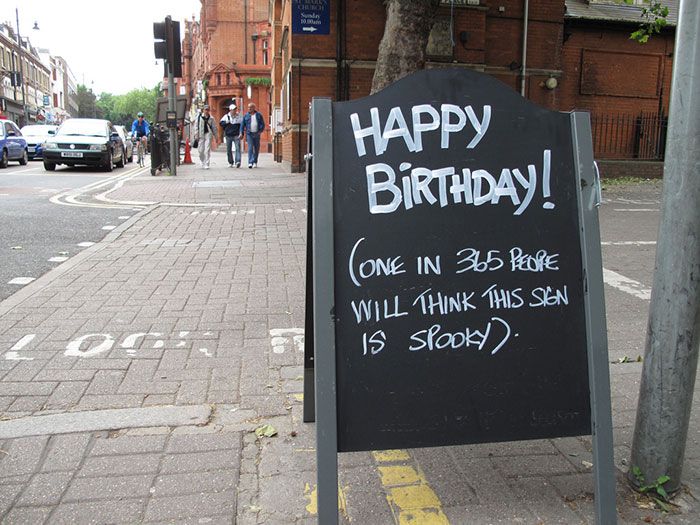 ST MARK'S
CHURCH
Sunday
10.00am
HAPPY
BIRTHDAY!
(ONE IN 365 PEOPLE
WILL THINK THIS SIGN
IS SPOOKY).
LOOK